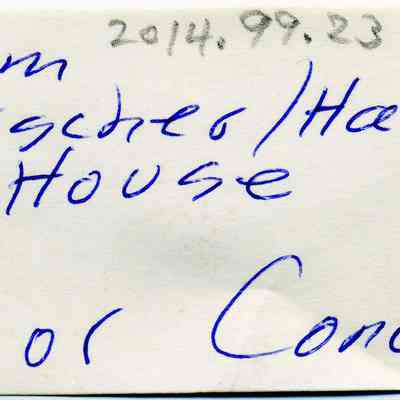 2014.99.23
m
scher/Ha
House
or Con